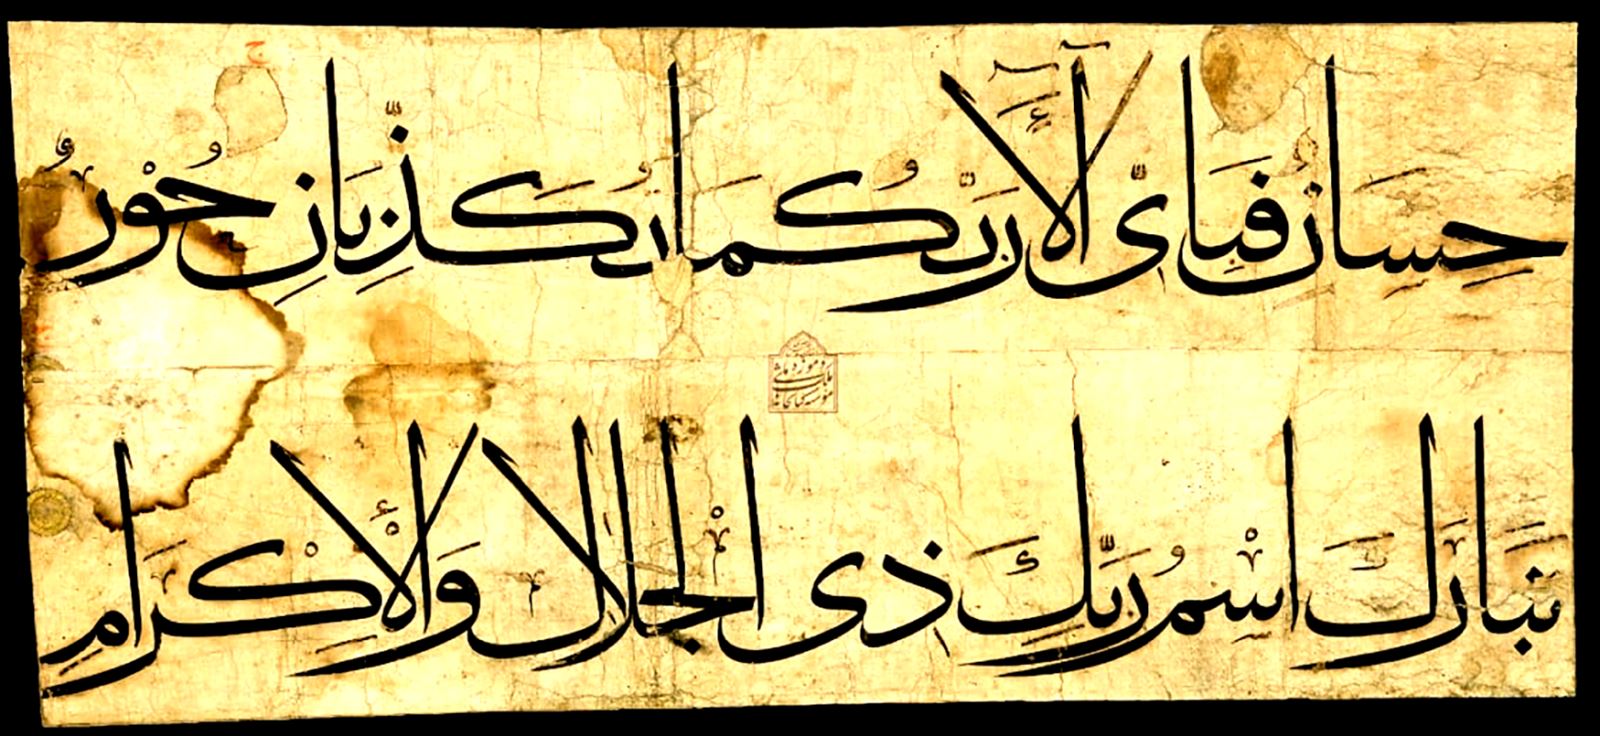 حِسَانٌ فَبِاَىِّ اٰلَآءِ رَبِّكُمَا تُكَذِّبَانِ حُوْرٌ
تَبَارَكَ اسْمُ رَبِّكَ ذِى الْجَلَالِ وَالْاِكْرَامِ